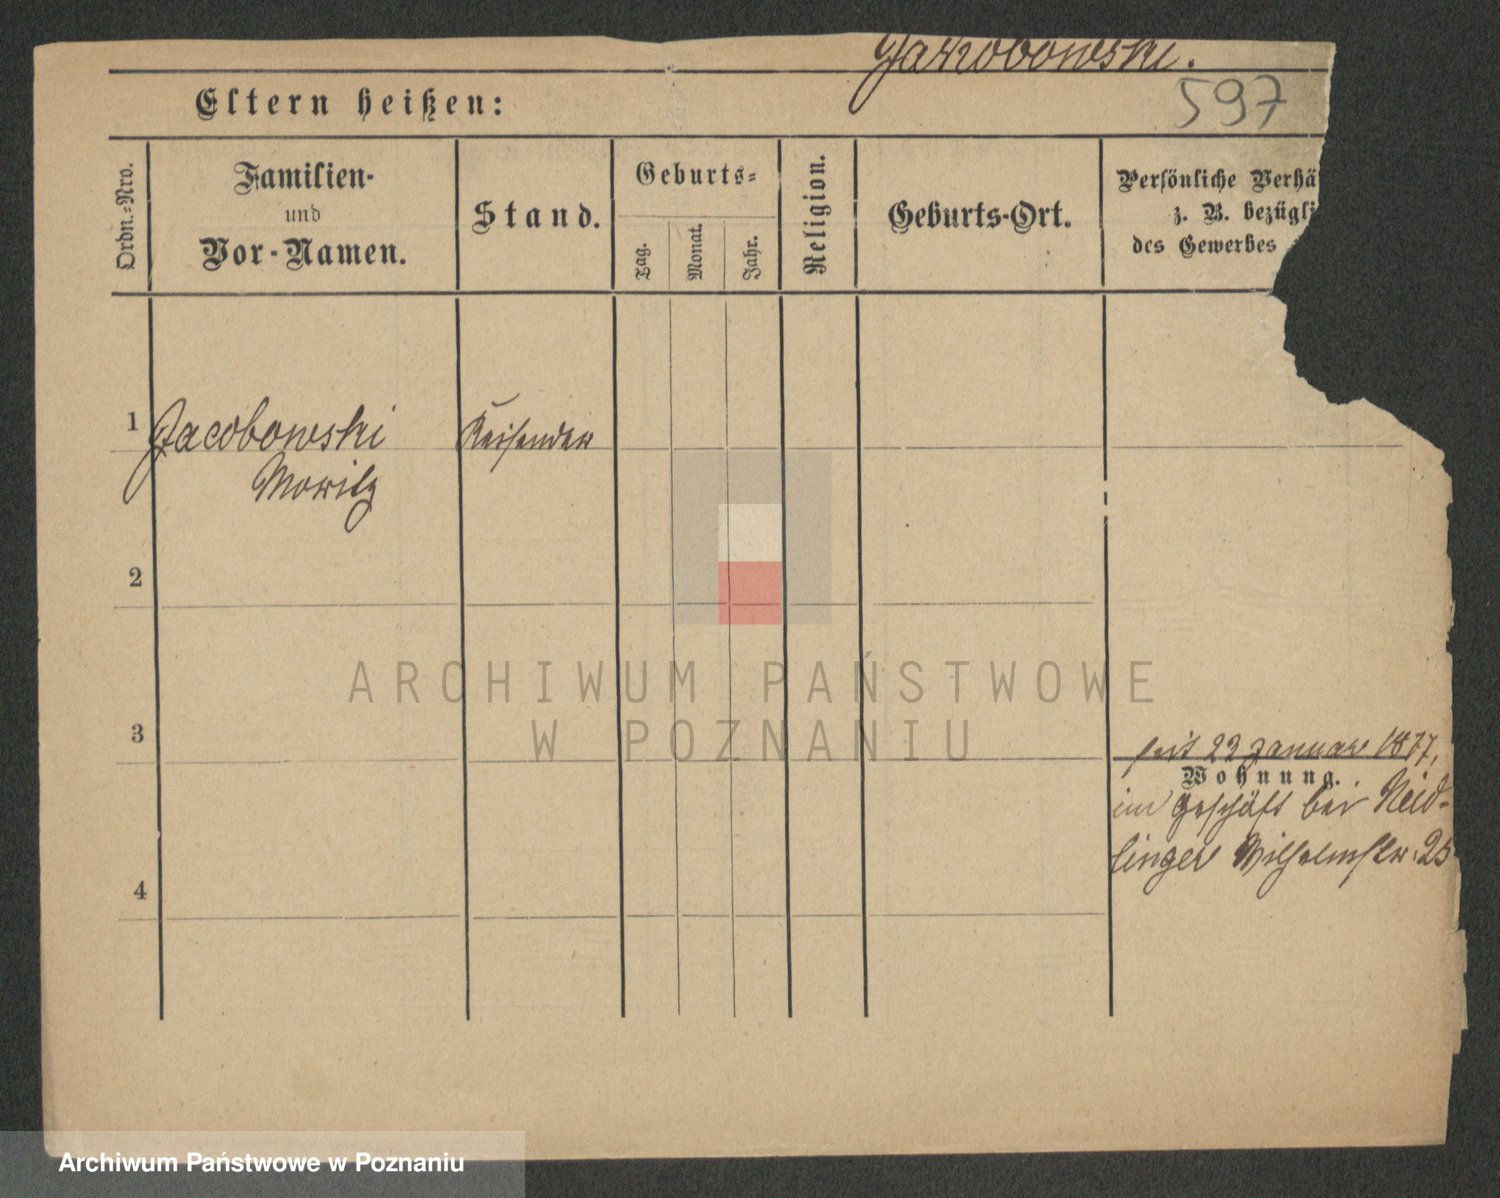 Jakobowski.
597
Eltern heißen:
Ordn.-Nro.
Familien-
und
Vor-Namen.
Stand.
Geburts-
Tag.
Monat.
Jahr.
Religion.
Geburts-Ort.
Persönliche Verhä
z. B. bezügli
des Gewerbes
1
Jacobowski
Moritz
Reisender
2
3
seit 22 Januar 1877,
Wohnung.
im Geschäft bei Neid-
linger Wilhelmstr. 25
4
ARCHIWUM PAŃSTWOWE
W POZNANIU
Archiwum Państwowe w Poznaniu